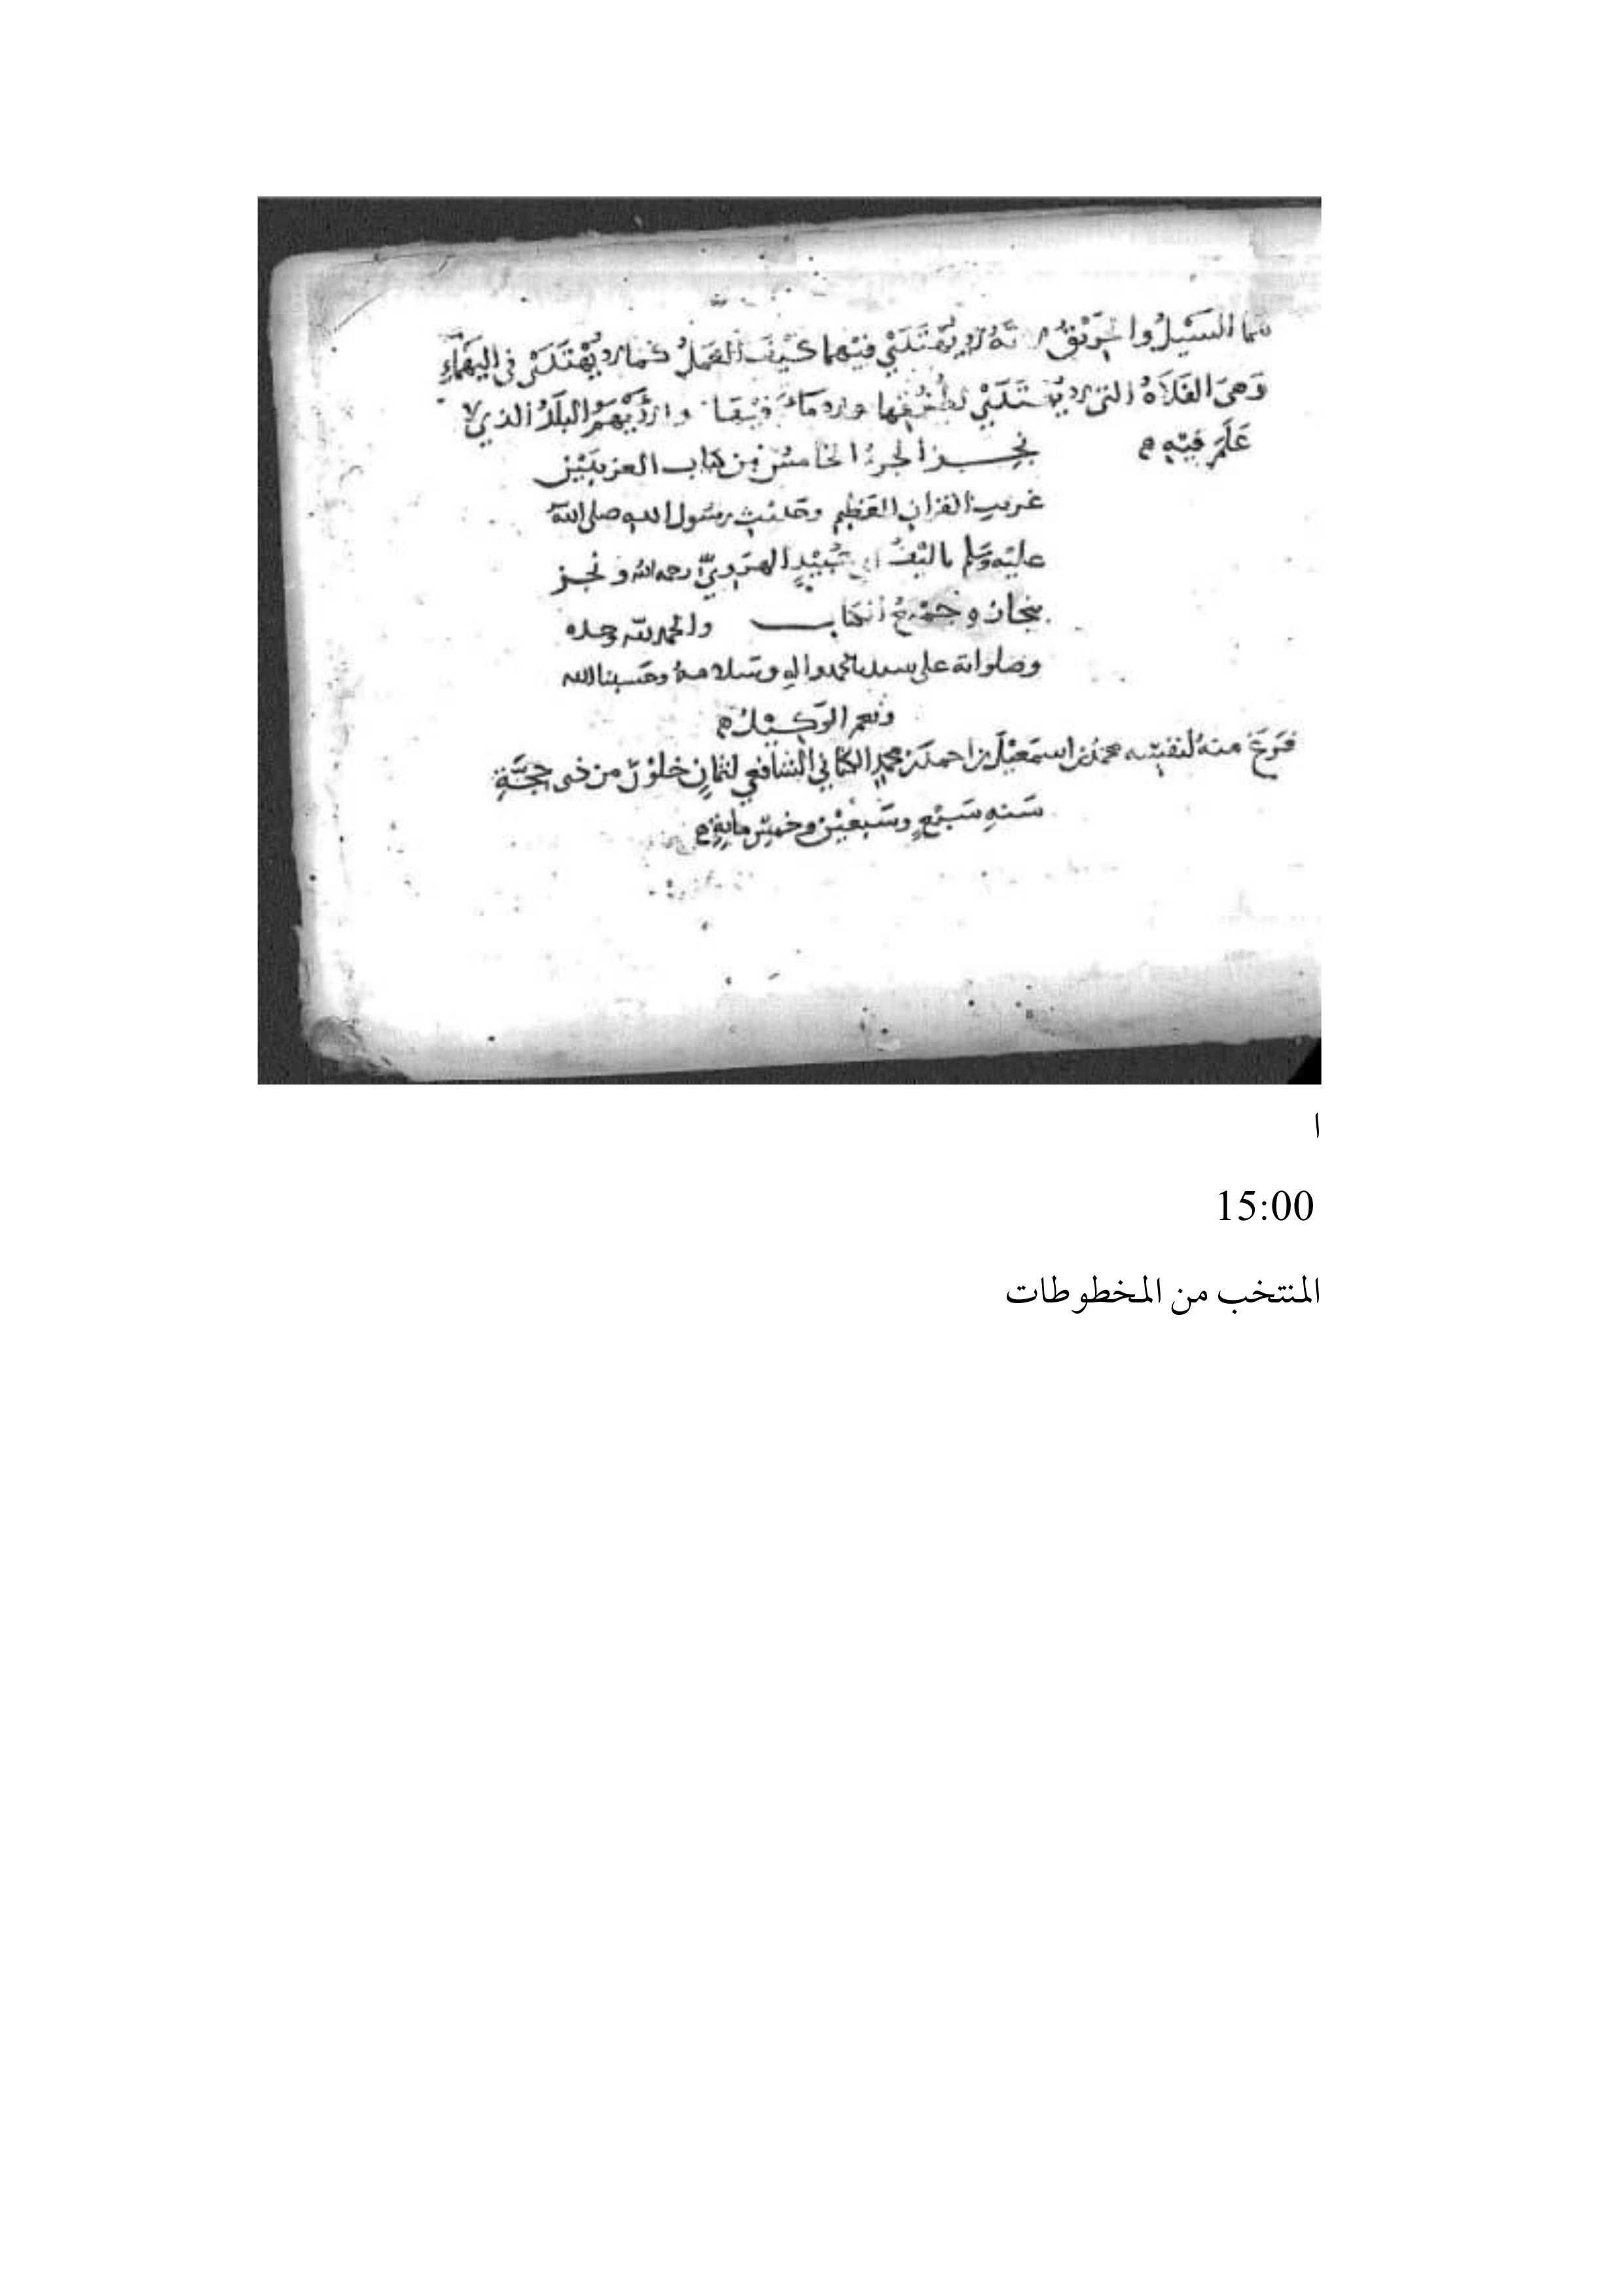 هما السَيْلُ والحَرِيْقُ لانه لا يُهْتَدَىْ فيْهما كَيْفَ العَمَلُ كما لا يُهْتَدَىْ فى اليَهْمَاءِ
وَهىَ الفَلَاةُ التى لا يُهْتَدَىْ لطُرُقِها ولا مَاءَ فيْها والأَيْهَمُ البَلَدُ الذي لا
عَلَمَ فيْهِ
نجــز الجزءُ الخامسُ من كتاب الغريبَيْن
غريبِ القرانِ العَظِيمِ وحَديْثِ رسُولِ اللهِ صلى اللهُ
عليْه وسَلم تاليْفُ ابي عُبَيْدٍ الهَرَوِيِّ رحمه الله ونجز
بنجازه جَمْيعُ الكتاب والحمد لله وحده
وصلواته على سيدنا محمد واله وسَلامهُ وحَسبنا الله
ونعم الوَكيْلُ
فَرَغَ منهُ لنفسِه محمدُ بن اسمَعيْلَ بن احمدَ بن محمدٍ الكتاني الشافعي لثمانٍ خلوْنَ من ذى حِجَّةِ
سَنهِ سَبْعٍ وسَبْعيْن وخمسِ مايةٍ
ا
15:00
المنتخب من المخطوطات